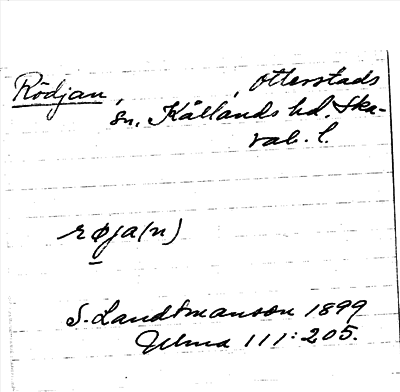 Rödjan, , Otterstads
sn, Kållands hd. Ska-
rab. l.
røja(n)
S. Landtmanson 1899
Ulma 111:205.